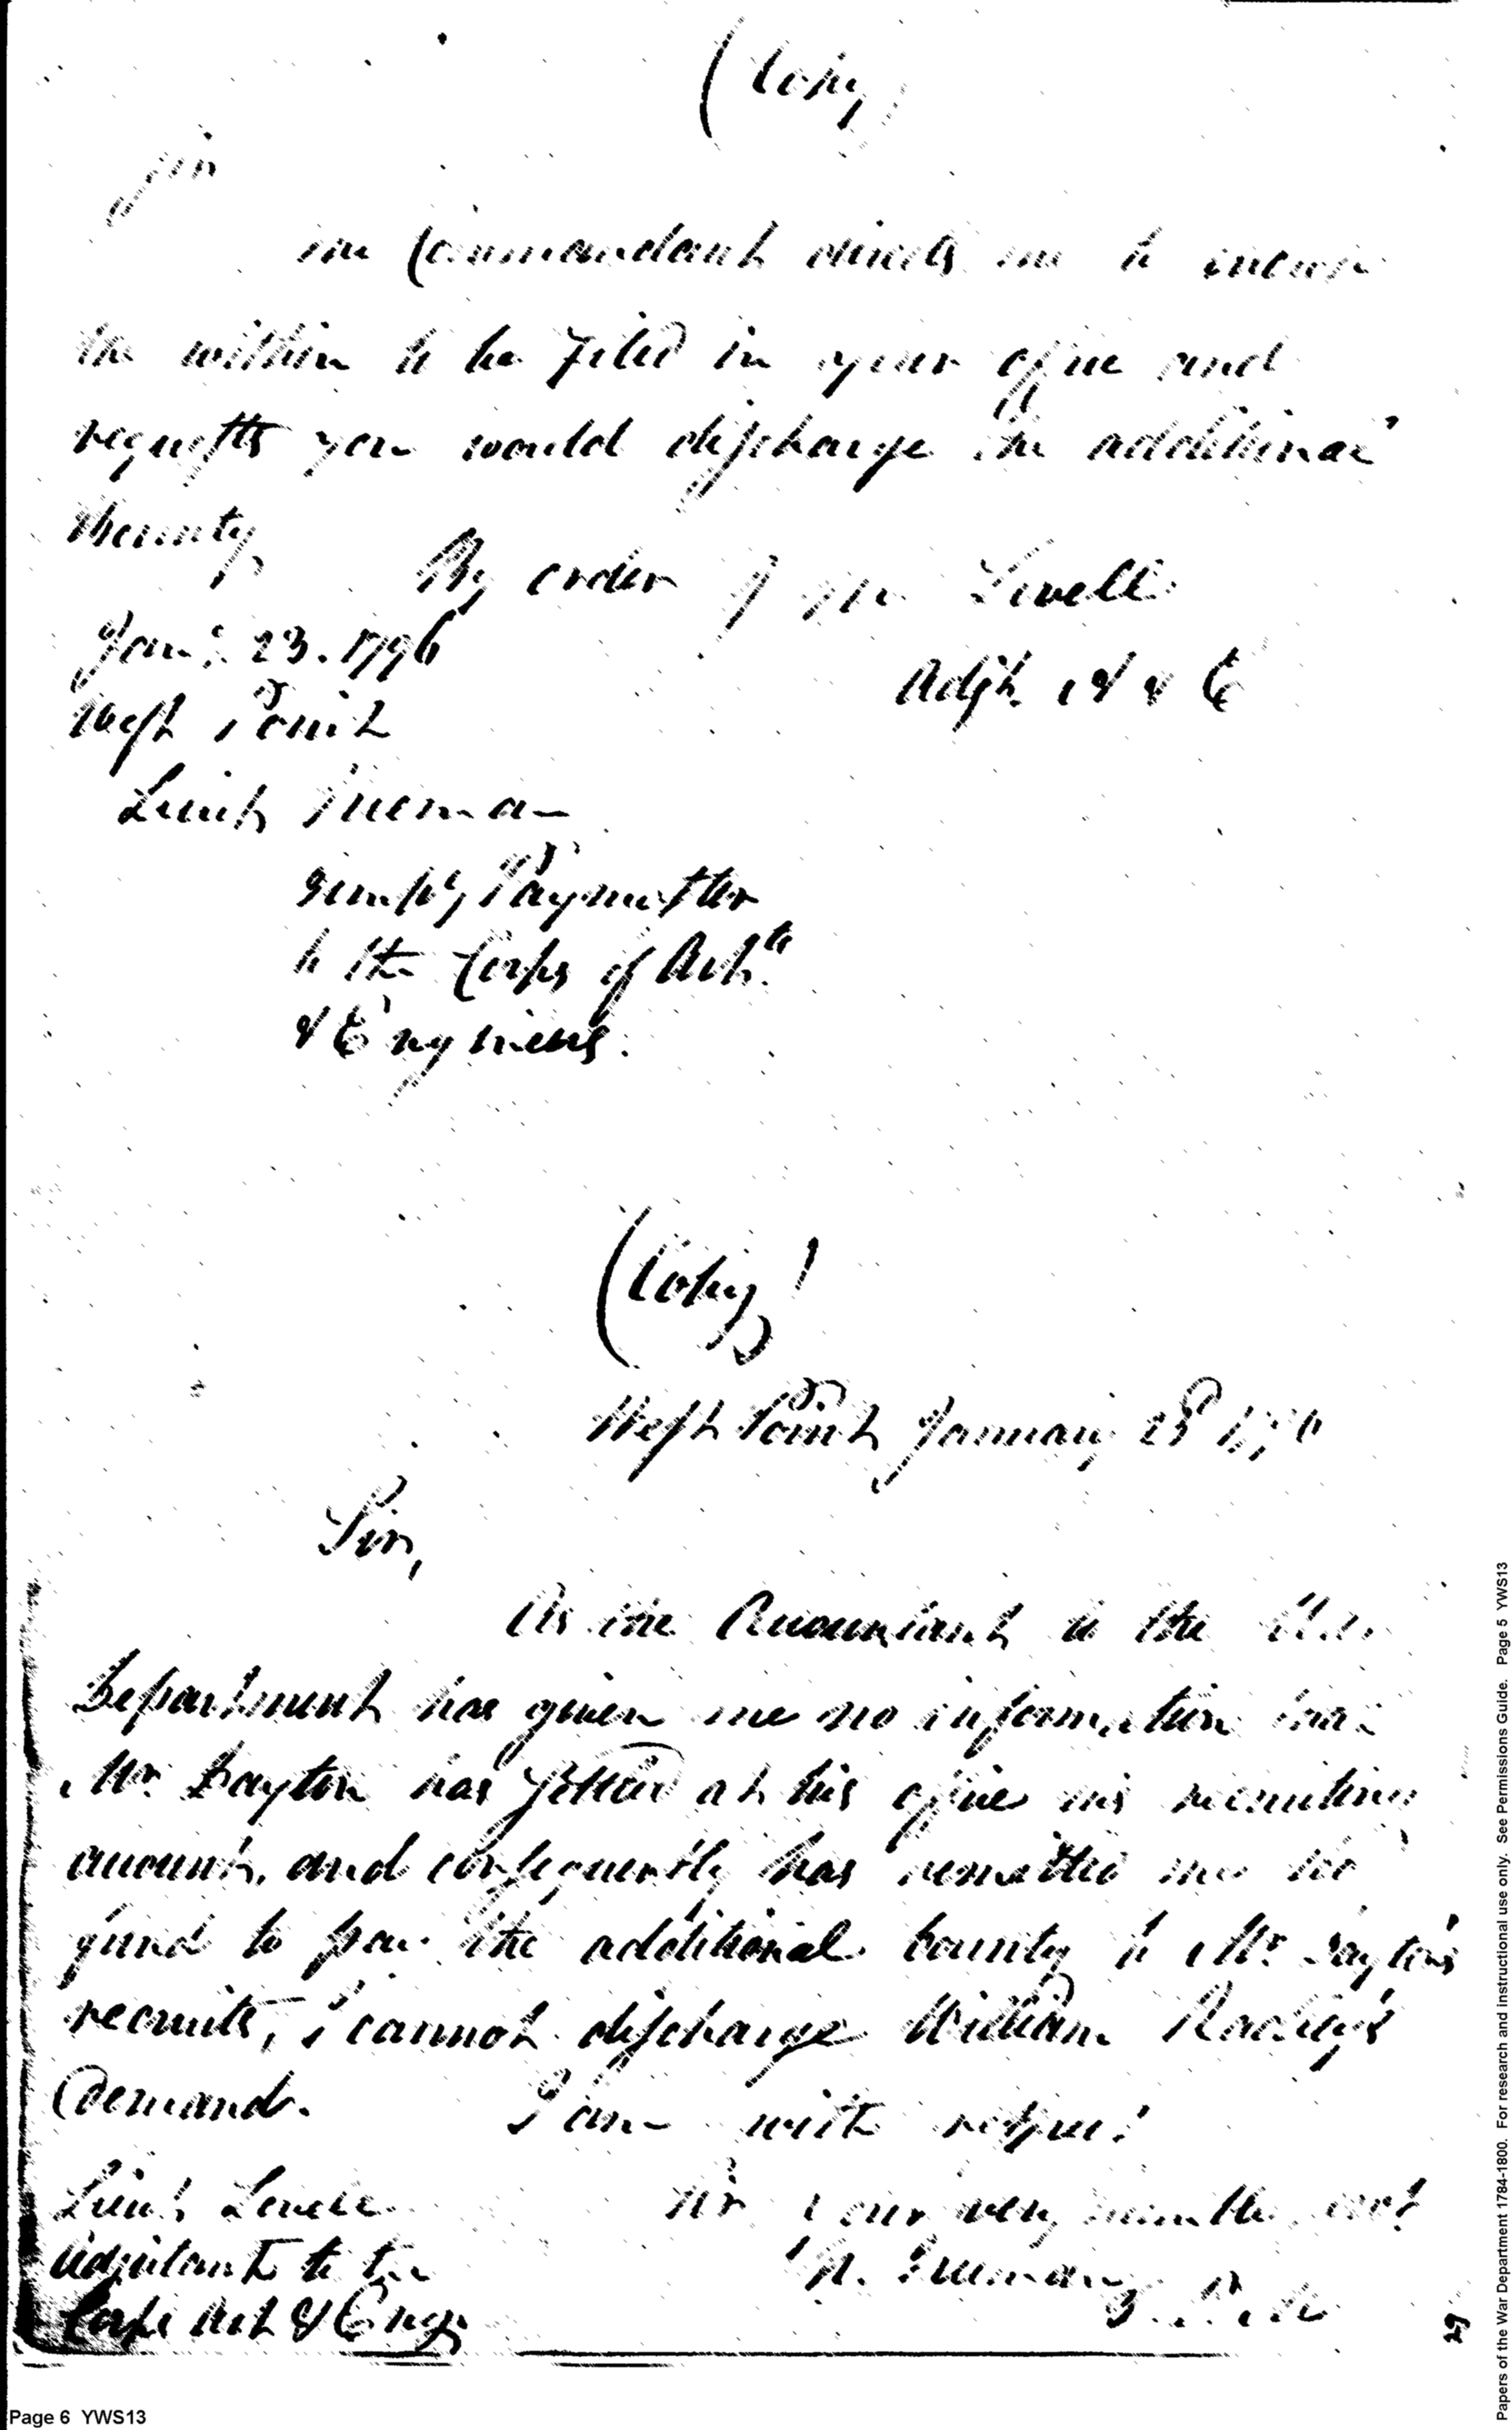 (Copy)
Sir
The Commandant directs me to inclose
the within to be filed in your office and
requests you would discharge the additional
Bounty
By order of Lovell
Jany. 23. 1796
Adjt. A & E
West Point
Lieut Freeman
Temply Paymaster
to the Corps of Arts.
& Engineers.
(Copy)
West Point January 23d 1796
Sir,
As the Accountant to the War
Department has given me no information that
Mr. Dayton has settled at his office his recruiting
account, and consequently has remitted me no
fund to pay the additional bounty to Mr. Dayton's
recruits, I cannot discharge William
Demand. I am with respect
Lieut. Lovell Sir Your very humble servt
Adjutant to the N. Freeman
Corps Art & Engs
29
Page 6 YWS13
Papers of the War Department 1784-1800. For research and instructional use only. See Permissions Guide. Page 5 YWS13